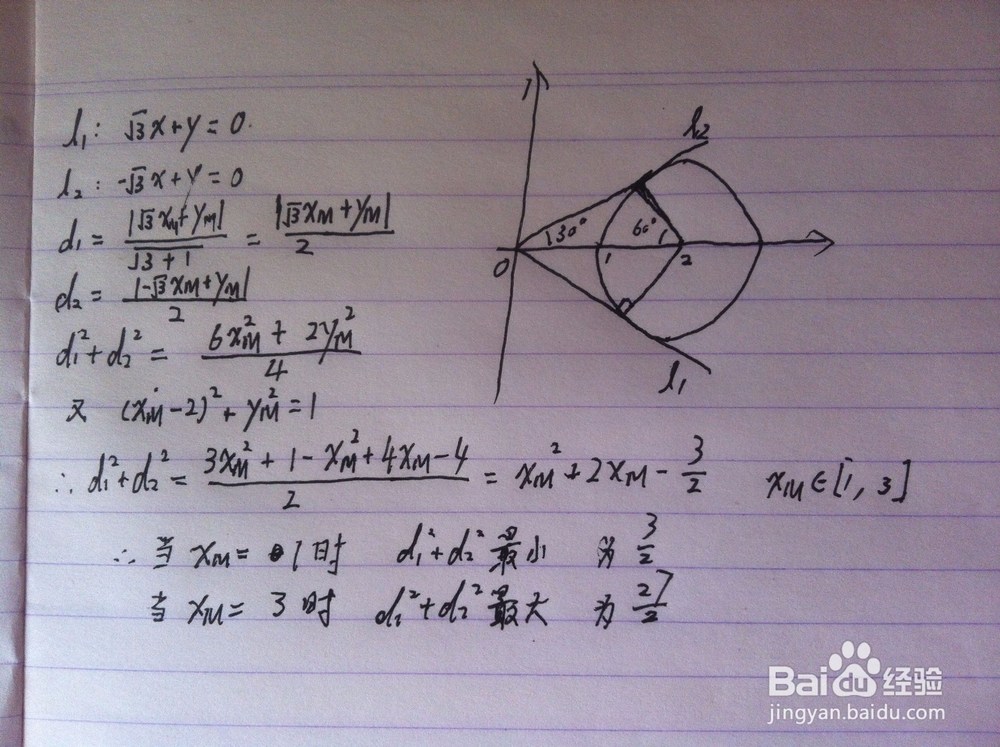 l₁: √3x+y=0.
l₂: -√3x+y=0
d₁ = |√3x_M+y_M| / √(3+1) = |√3x_M+y_M| / 2
d₂ = |-√3x_M+y_M| / 2
d₁²+d₂² = (6x_M²+2y_M²) / 4
又 (x_M-2)²+y_M²=1
∴ d₁²+d₂² = (3x_M²+1-x_M²+4x_M-4) / 2 = x_M²+2x_M-3/2 x_M∈[1,3]
∴ 当 x_M=1时 d₁²+d₂²最小 为 3/2
当 x_M=3时 d₁²+d₂²最大 为 27/2
l₂
30°
60°
O
1
2
l₁
Baidu经验
jingyan.baidu.com